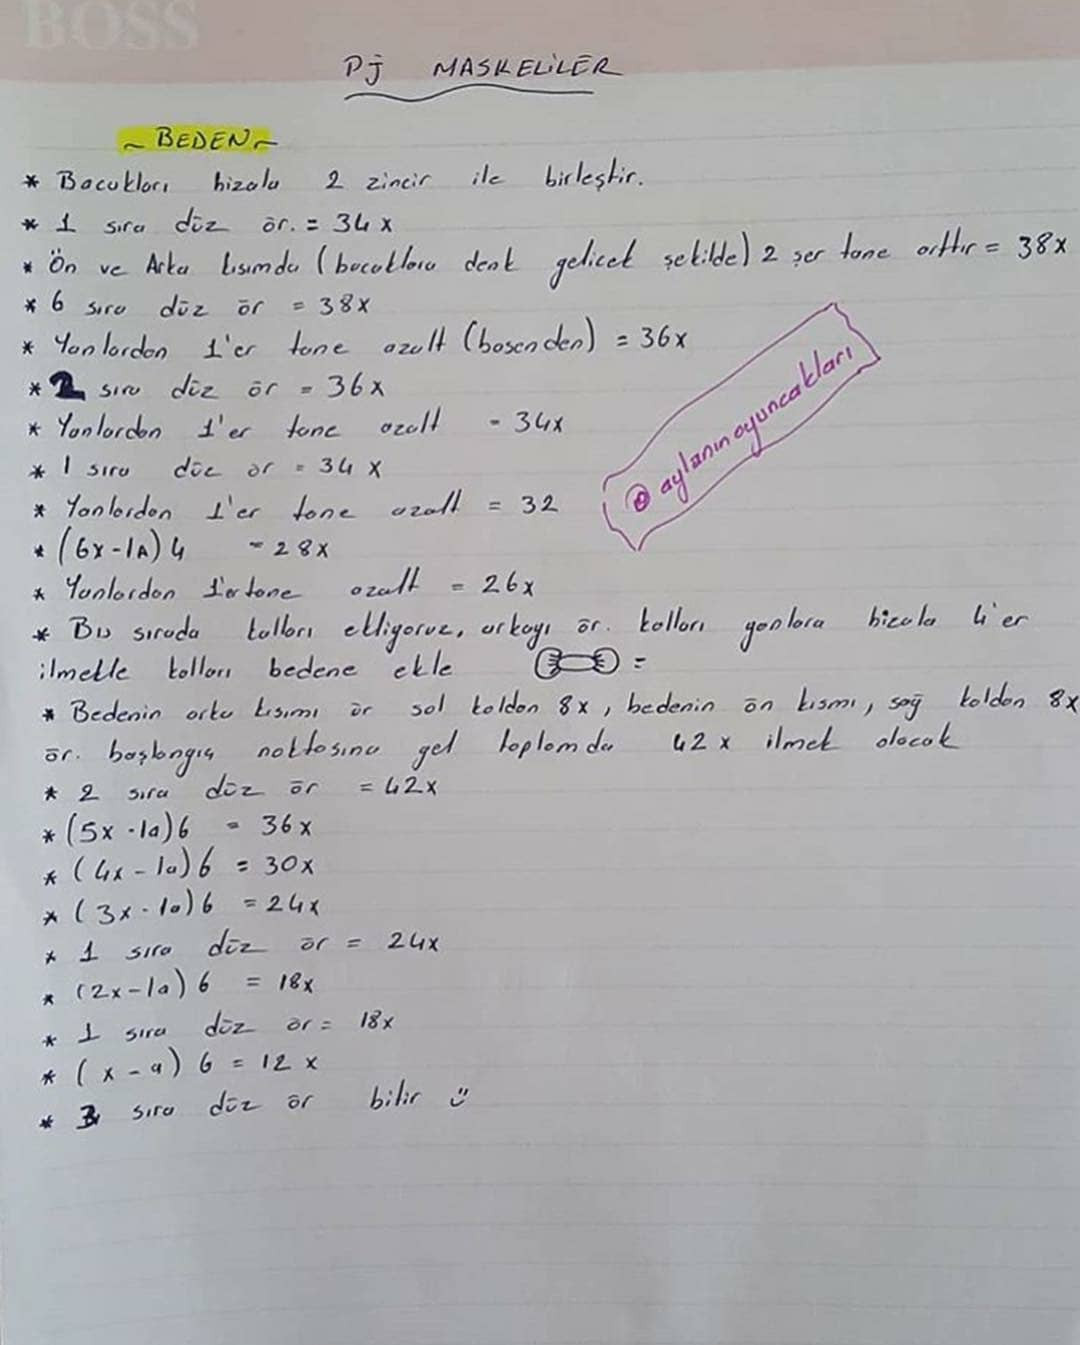 BOSS
Pj MASKELİLER
~ BEDEN ~
* Bacukları hizala 2 zincir ile birleştir.
* 1 sıra düz ör. = 34 x
* Ön ve Arka kısımda (bacaklara denk gelicek şekilde) 2 şer tane arttır = 38x
* 6 sıra düz ör = 38x
* Yanlardan 1'er tane azalt (basenden) = 36x
* 2 sıra düz ör = 36x
* Yanlardan 1'er tane azalt = 34x
* 1 sıra düz ör = 34 x
* Yanlardan 1'er tane azalt = 32
* (6x-1A) 4 = 28x
* Yanlardan 1'er tane azalt = 26x
* Bu sırada kolları ekliyoruz, arkayı ör. kolları yanlara hizala 4'er
ilmekle kolları bedene ekle =
* Bedenin arka kısımı ör sol koldan 8x, bedenin ön kısmı, sağ koldan 8x
ör. başlangıç noktasına gel toplamda 42 x ilmek olacak
* 2 sıra düz ör = 42x
* (5x -1a) 6 = 36x
* (4x - 1a) 6 = 30x
* (3x - 1a) 6 = 24x
* 1 sıra düz ör = 24x
* (2x - 1a) 6 = 18x
* 1 sıra düz ör = 18x
* (x - a) 6 = 12 x
* 3 sıra düz ör bitir
@ aylanınoyuncakları